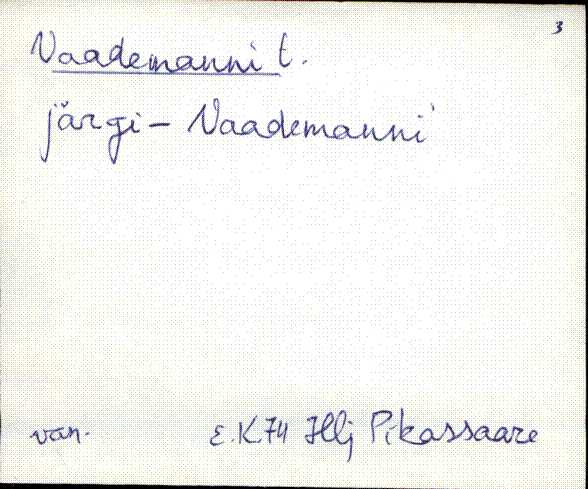 3
Vaademanni t.
järgi – Vaademanni
van. E.K74 Hlj Pikassaare